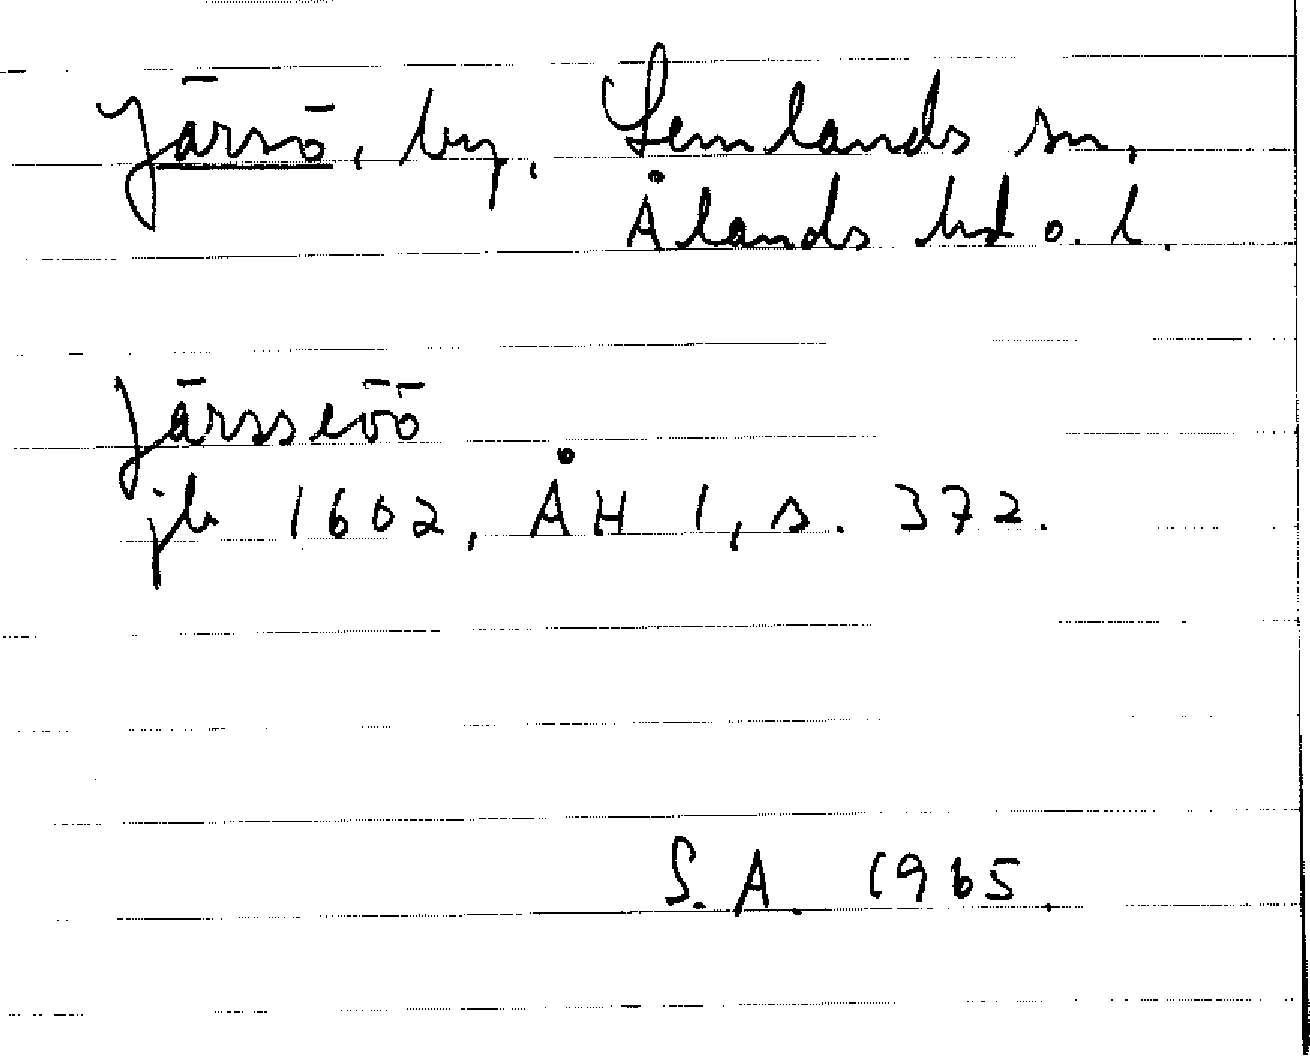 Järsö, by, Lemlands sn,
Ålands hd o. l.
Järsseöö
jb 1602, ÅH 1, s. 372.
S. A. 1965.